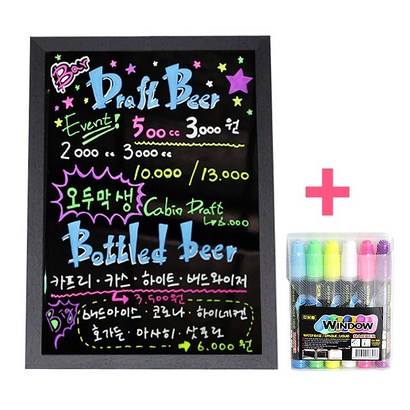 Bar
Draft Beer
Event! 500 cc 3,000 원
2000 cc 3000 cc
10.000 / 13.000
오두막 생
Cabin Draft
6.000
Bottled beer
카프리 · 카스 · 하이트 · 버드와이저
3,500원
Big
버드아이스 · 코로나 · 하이네켄
호가든 · 아사히 · 삿포로
6.000 원
WINDOW